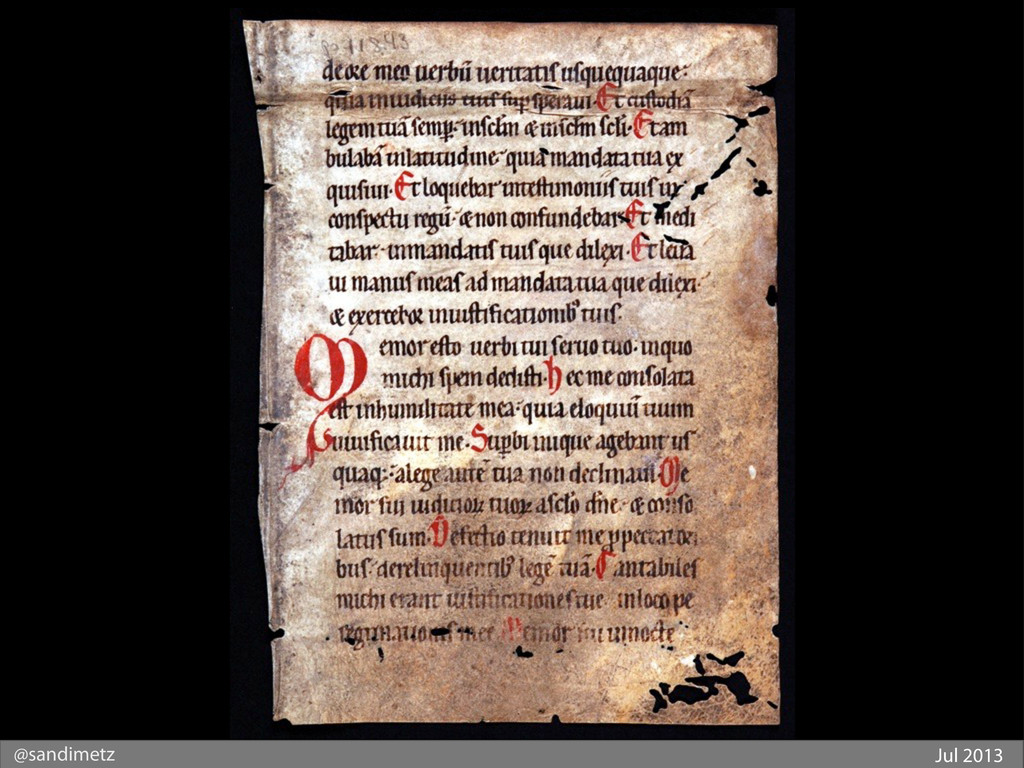 de ore meo verbū veritatis usquequaque:
quia in iudiciis tuis sup speravi. Et custodiā
legem tuā semp. in sclm & in sclm scli. Et am
bulabā in latitudine. quia mandata tua ex
quisivi. Et loquebar in testimoniis tuis in
conspectu regū. & non confundebar. Et medi
tabar in mandatis tuis que dilexi. Et leva
vi manus meas ad mandata tua que dilexi.
& exercebor in iustificationib; tuis.
Memor esto verbi tui servo tuo. in quo
michi spem dedisti. Hec me consolata
est in humilitate mea. quia eloquiū tuum
vivificavit me. Supbi inique agebant us
quaq;: a lege autē tua non declinavi. Me
mor fui iudicioꝝ tuoꝝ a sclo dne. & conso
latus sum. Defectio tenuit me p peccatori
bus derelinquentib; legē tuā. Cantabiles
michi erant iustificationes tue. in loco pe
regrinationis mee. Memor fui in nocte
@sandimetz
Jul 2013